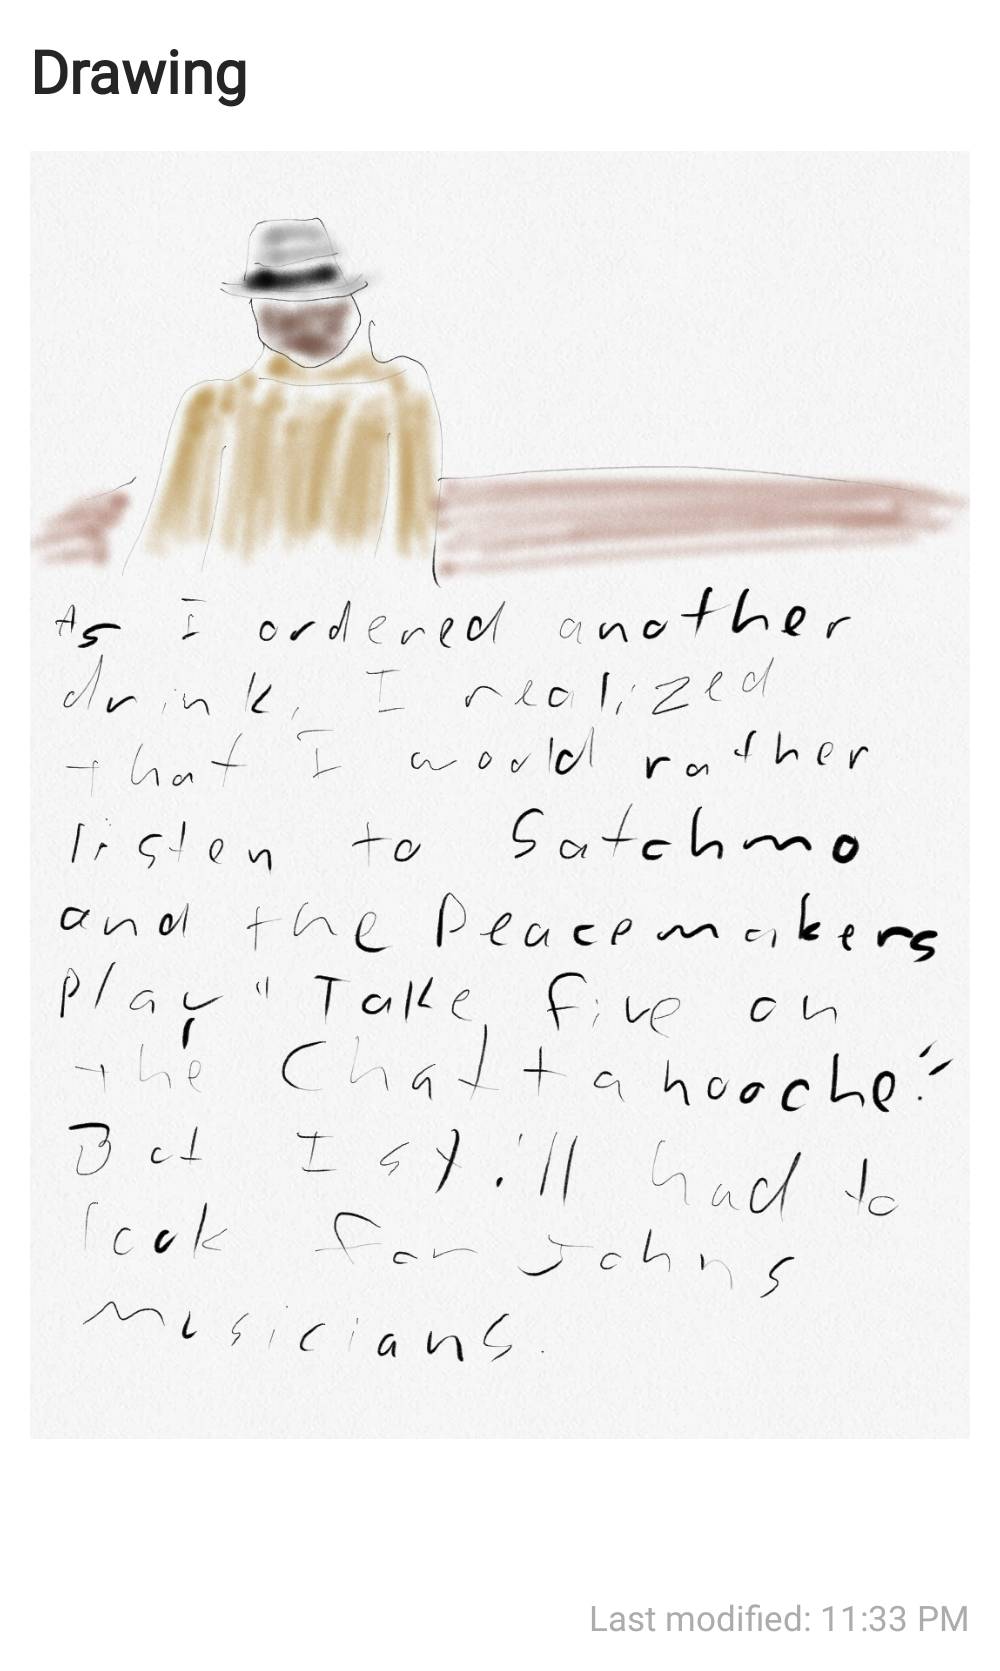 Drawing
As I ordered another
drink, I realized
that I would rather
listen to Satchmo
and the Peacemakers
play "Take five on
the Chattahooche."
But I still had to
look for Johns
musicians.
Last modified: 11:33 PM